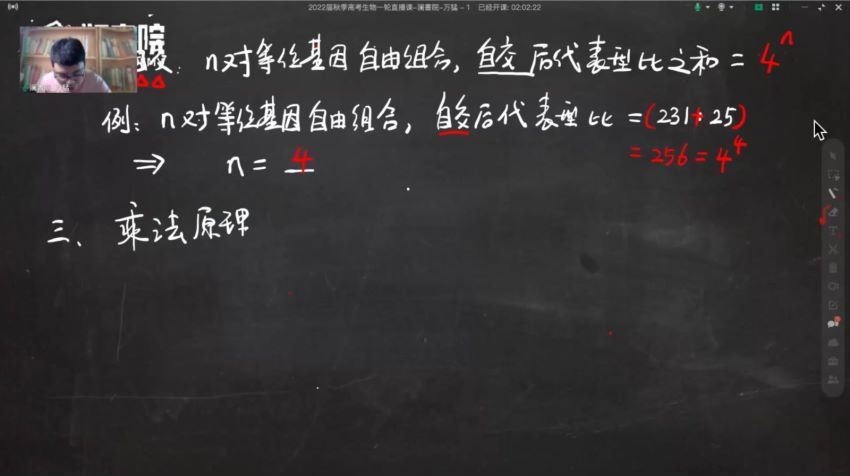 2022届秋季高考生物一轮直播课-澜書院-万猛 - 1 已经开课: 02:02:22
n对等位基因自由组合, 自交后代表型比之和 = 4^n
例: n对等位基因自由组合, 自交后代表型比 = (231 + 25)
= 256 = 4^4
⇒ n = 4
三、乘法原理